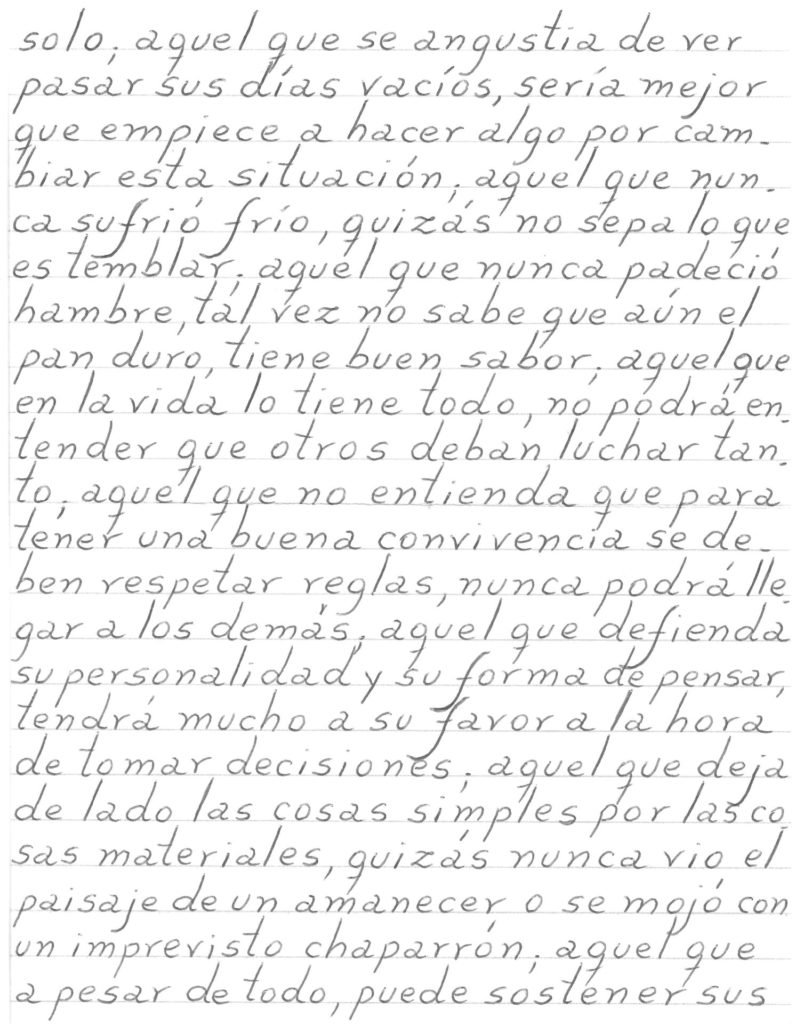 solo; aquel que se angustia de ver
pasar sus días vacíos, sería mejor
que empiece a hacer algo por cam-
biar esta situación; aquel que nun-
ca sufrió frío, quizás no sepa lo que
es temblar; aquel que nunca padeció
hambre, tal vez no sabe que aún el
pan duro, tiene buen sabor; aquel que
en la vida lo tiene todo, no podrá en-
tender que otros deban luchar tan-
to; aquel que no entienda que para
tener una buena convivencia se de-
ben respetar reglas, nunca podrá lle-
gar a los demás; aquel que defienda
su personalidad y su forma de pensar,
tendrá mucho a su favor a la hora
de tomar decisiones; aquel que deja
de lado las cosas simples por las co-
sas materiales, quizás nunca vio el
paisaje de un amanecer o se mojó con
un imprevisto chaparrón; aquel que
a pesar de todo, puede sostener sus